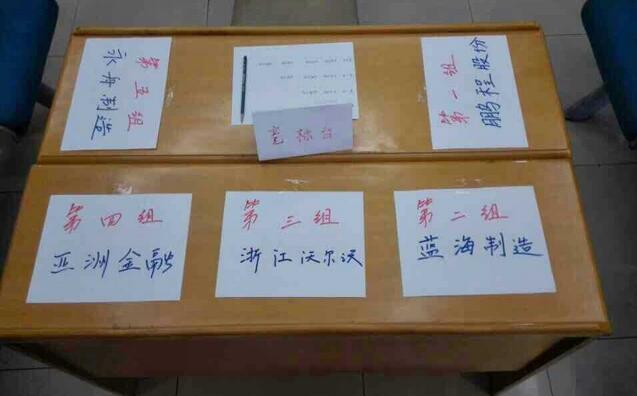 第五组
永舟制造
第一组
鹏程股份
第四组
亚洲金融
第三组
浙江沃尔沃
第二组
蓝海制造